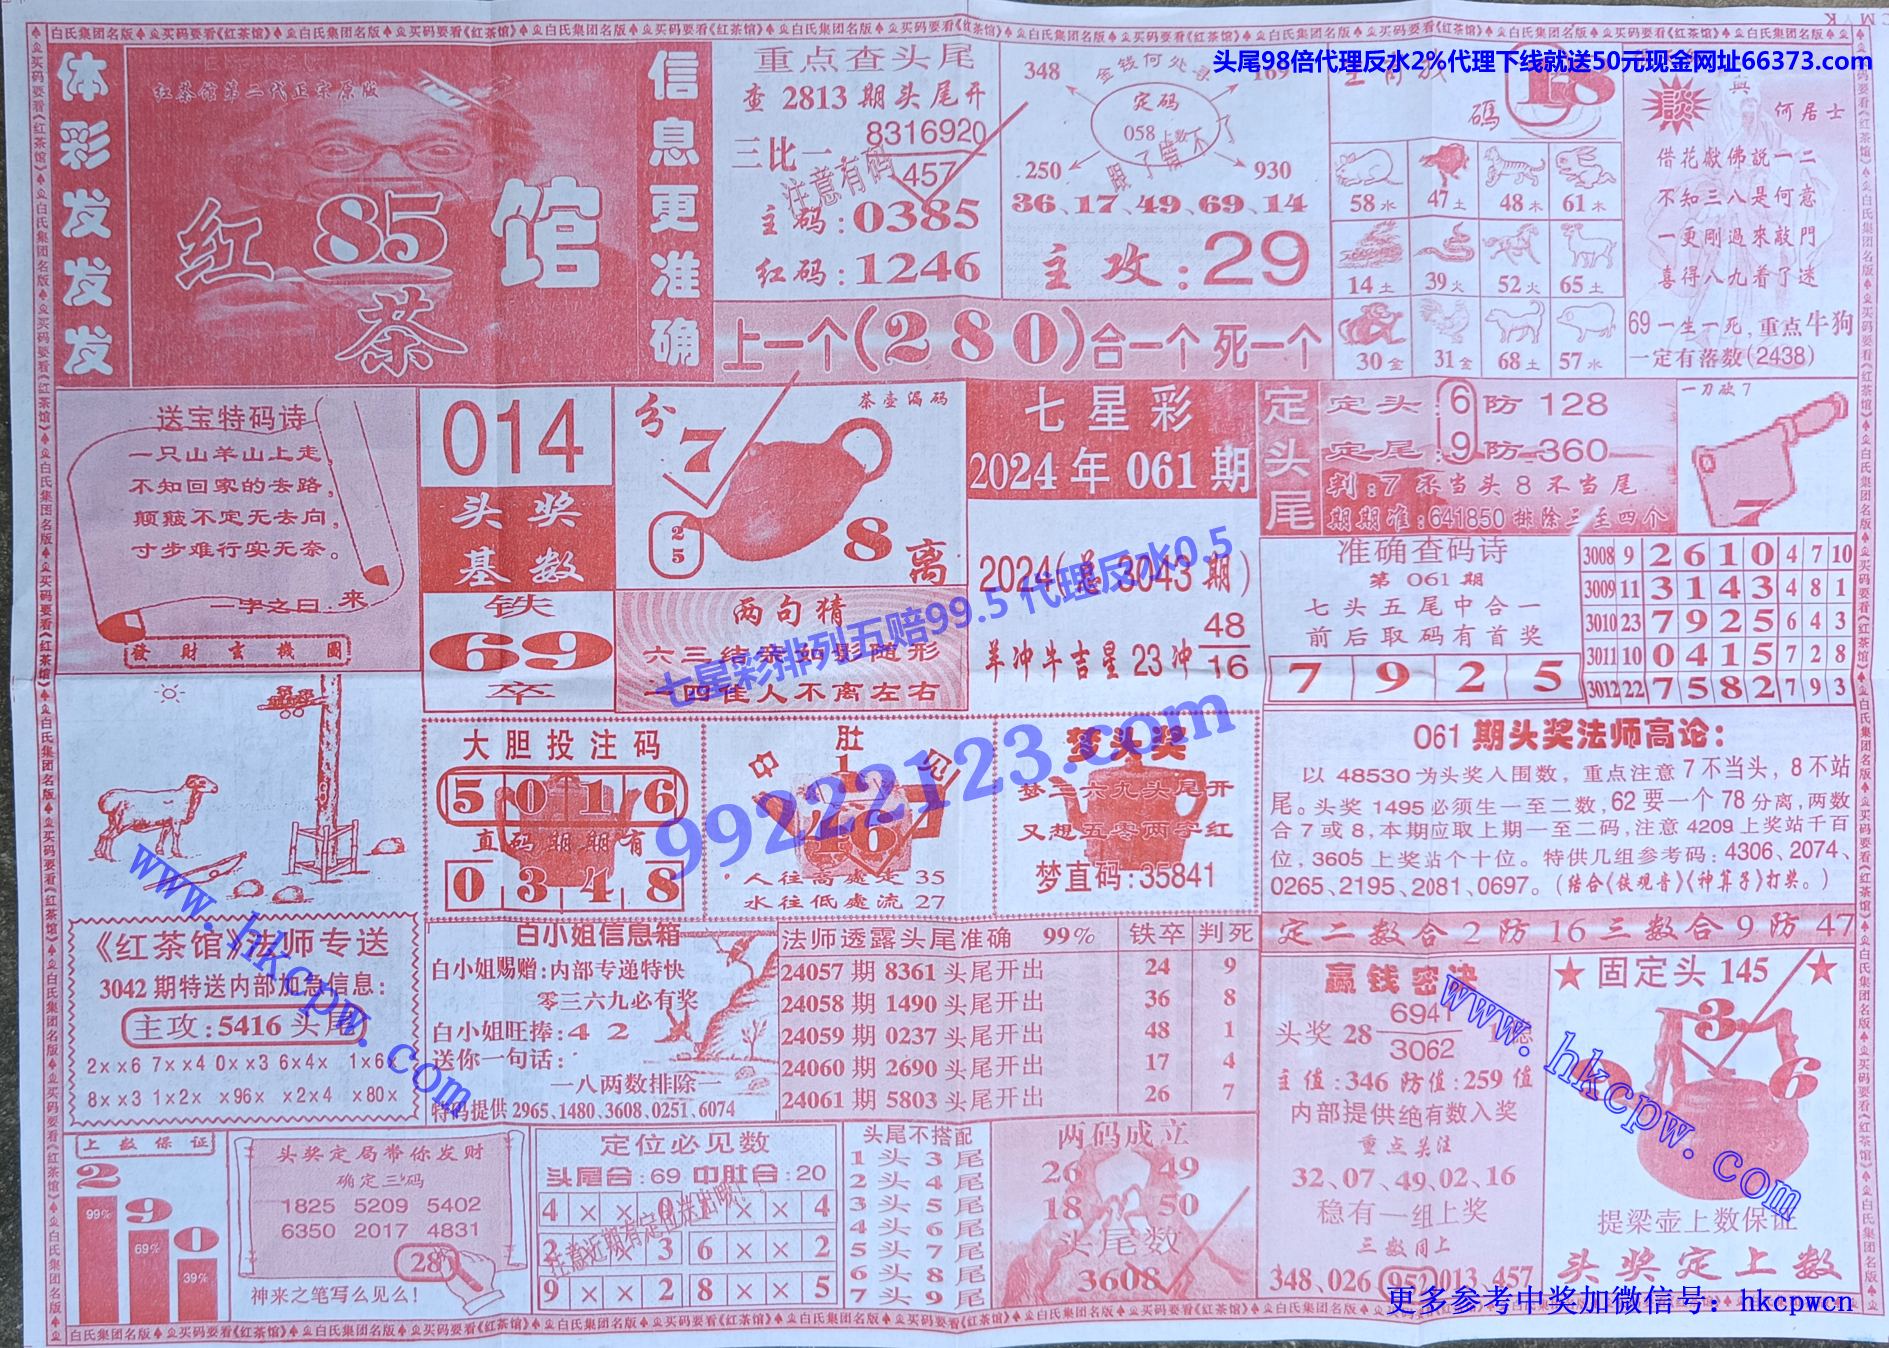 白氏集团名版♠买码要看《红茶馆》♠白氏集团名版♠买码要看《红茶馆》
头尾98倍代理反水2%代理下线就送50元现金网址66373.com
体彩发发发
红茶馆第二代正宗原版
红茶馆
85
信息更准确
重点查头尾
查 2813 期头尾开
三比一
8316920
457
注意有码
主码:0385
红码:1246
金钱何处寻
348
169
定码
058上数
跟了错不了
250
930
36、17、49、69、14
主攻:29
上一个(280)合一个 死一个
碼
18
58水 47土 48木 61木
14土 39火 52火 65土
30金 31金 68土 57水
談
與
何居士
借花献佛説一二
不知三八是何意
一更剛過來敲門
喜得八九着了迷
69一生一死,重点牛狗
一定有落数(2438)
送宝特码诗
一只山羊山上走,
不知回家的去路,
颠簸不定无去向,
寸步难行实无奈。
一字之曰.来
發財玄機圖
014
头奖
基数
铁
69
卒
茶壶漏码
分
7
25
8
离
两句猜
六三结亲如影随形
一四佳人不离左右
七星彩
2024年061期
2024(总3043期)
羊冲牛吉星23冲
48
16
定头尾
定头:6防128
定尾:9防360
判:7不当头8不当尾
期期准:641850排除三至四个
一刀砍7
7
准确查码诗
第 061 期
七头五尾中合一
前后取码有首奖
7 9 2 5
3008 9 2 6 1 0 4 7 10
3009 11 3 1 4 3 4 8 1
3010 23 7 9 2 5 6 4 3
3011 10 0 4 1 5 7 2 8
3012 22 7 5 8 2 7 9 3
七星彩排列五赔99.5 代理反水0.5
99222123.com
大胆投注码
5 0 1 6
直码期期有
0 3 4 8
中肚见
1
46
人往高處走 35
水往低處流 27
梦头奖
梦二六九头尾开
又想五零两字红
梦直码:35841
061期头奖法师高论:
以 48530 为头奖入围数，重点注意7不当头，8不站
尾。头奖 1495 必须生一至二数,62要一个78分离,两数
合7或8,本期应取上期一至二码,注意 4209 上奖站千百
位，3605 上奖站个十位。特供几组参考码:4306、2074、
0265、2195、2081、0697。(结合《铁观音》《神算子》打奖。)
定二数合2防16三数合9防47
《红茶馆》法师专送
3042期特送内部加急信息:
主攻:5416头尾
2xx6 7xx4 0xx3 6x4x 1x6x
8xx3 1x2x x96x x2x4 x80x
白小姐信息箱
白小姐赐赠:内部专递特快
零三六九必有奖
白小姐旺捧:4 2
送你一句话:
一八两数排除一
特码提供2965、1480、3608、0251、6074
法师透露头尾准确 99% 铁卒 判死
24057期 8361 头尾开出 24 9
24058期 1490 头尾开出 36 8
24059期 0237 头尾开出 48 1
24060期 2690 头尾开出 17 4
24061期 5803 头尾开出 26 7
赢钱密决
头奖28
6941
3062
主值:346 防值:259 值
内部提供绝有数入奖
重点关注
32、07、49、02、16
稳有一组上奖
三数同上
348、026 952 013、457
★固定头145★
3
6
提梁壶上数保证
头奖定上数
上数保证
2
9
0
99%
69%
39%
头奖定局带你发财
确定三码
1825 5209 5402
6350 2017 4831
28
神来之笔写么见么!
定位必见数
头尾合:69 中肚合:20
4 × × 0 1 × × 4
2 × × 3 6 × × 2
9 × × 2 8 × × 5
注意近期有定位送出哦!
头尾不搭配
1头3尾
2头4尾
3头5尾
4头6尾
5头7尾
6头8尾
7头9尾
两码成立
26 49
18 50
头尾数
3608
www.hkcpw.com
www.hkcpw.com
更多参考中奖加微信号：hkcpwcn